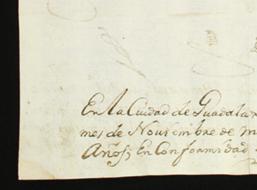 En la Ciudad de Guadala
mes de Nouiembre de m
Años, En Conformidad